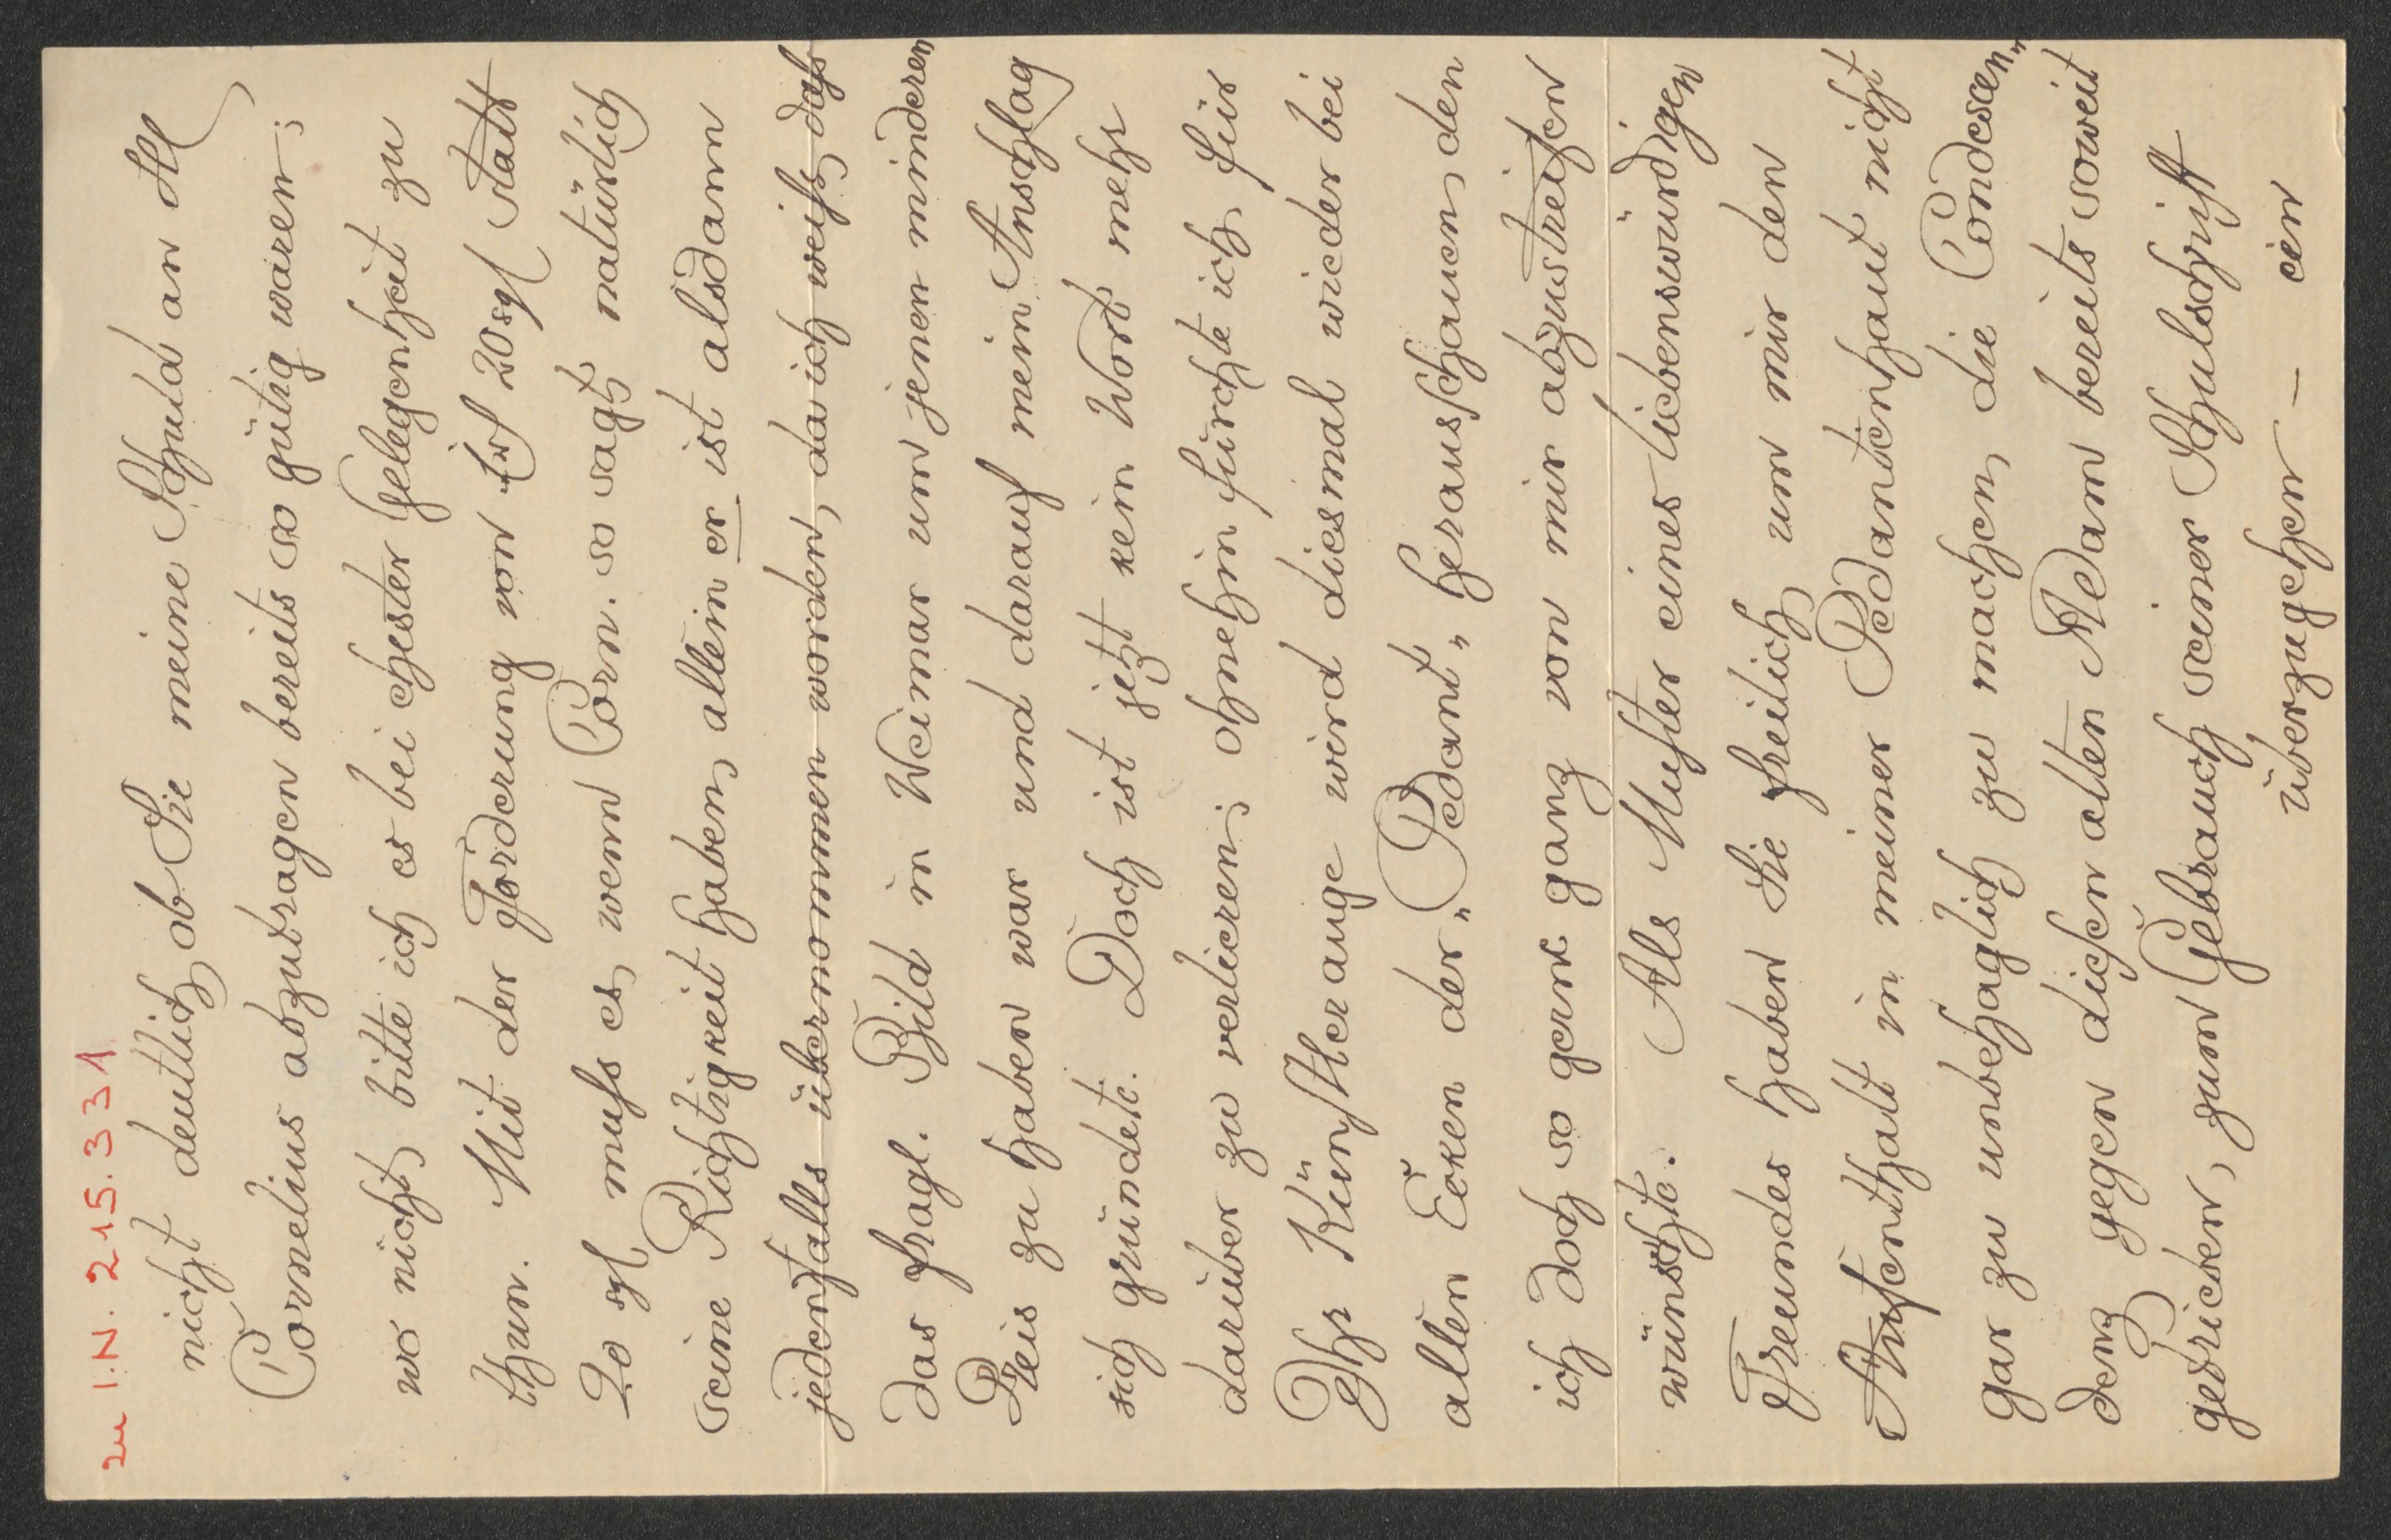 zu I.N. 215.331
nicht deutlich, ob Sie meine Schuld an H
Cornelius abzutragen bereits so gütig waren;
wo nicht, bitte ich es bei ehester Gelegenheit zu
thun. Mit der Forderung von 20 sgl statt
20 sgl muſs es, wenn Corn. so sagt, natürlich
seine Richtigkeit haben, allein er ist alsdann
jedenfalls übernommen worden, da ich weiſs, daſs
das fragl. Bild in Weimar um jenen minderen
Preis zu haben war und darauf mein Anschlag
sich gründete. Doch ist jetzt kein Wort mehr
darüber zu verlieren; ohnehin fürchte ich, für
Ihr Künstlerauge wird diesmal wieder bei
allen Ecken der „Pedant„ herausschauen, den
ich doch so gern ganz von mir abzustreifen
wünschte. Als Muster eines liebenswürdigen
Freundes haben Sie freilich, um mir den
Aufenthalt in meiner Pedantenhaut nicht
gar zu unbehaglich zu machen, die Condescen„
denz gegen diesen alten Adam bereits soweit
getrieben, zum Gebrauch seiner Schulschrift
überzugehen – ein